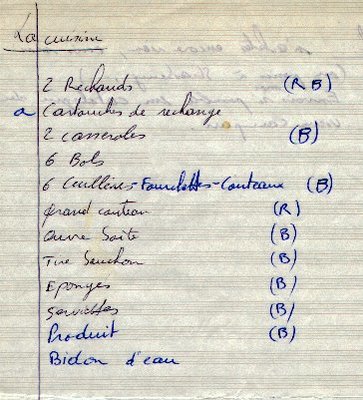 La cuisine
2 Rechauds (R B)
a Cartouches de rechange
2 casseroles (B)
6 Bols
6 Cuillères-Fourchettes-Couteaux (B)
Grand couteau (R)
Ouvre Boite (B)
Tire Bouchon (B)
Eponges (B)
Serviettes (B)
Produit (B)
Bidon d'eau